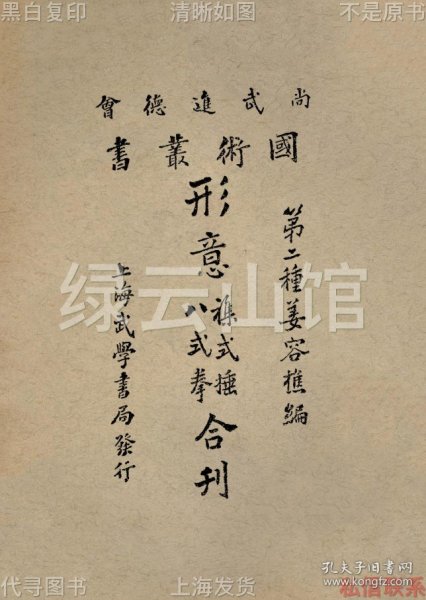 黑白复印 清晰如图 不是原书
尚武進德會
國術叢書
第二種姜容樵編
形意
雜式捶
八式拳
合刊
上海武學書局發行
绿云山馆
孔夫子旧书网
www.kongfz.com
代寻图书 上海发货 私信联系